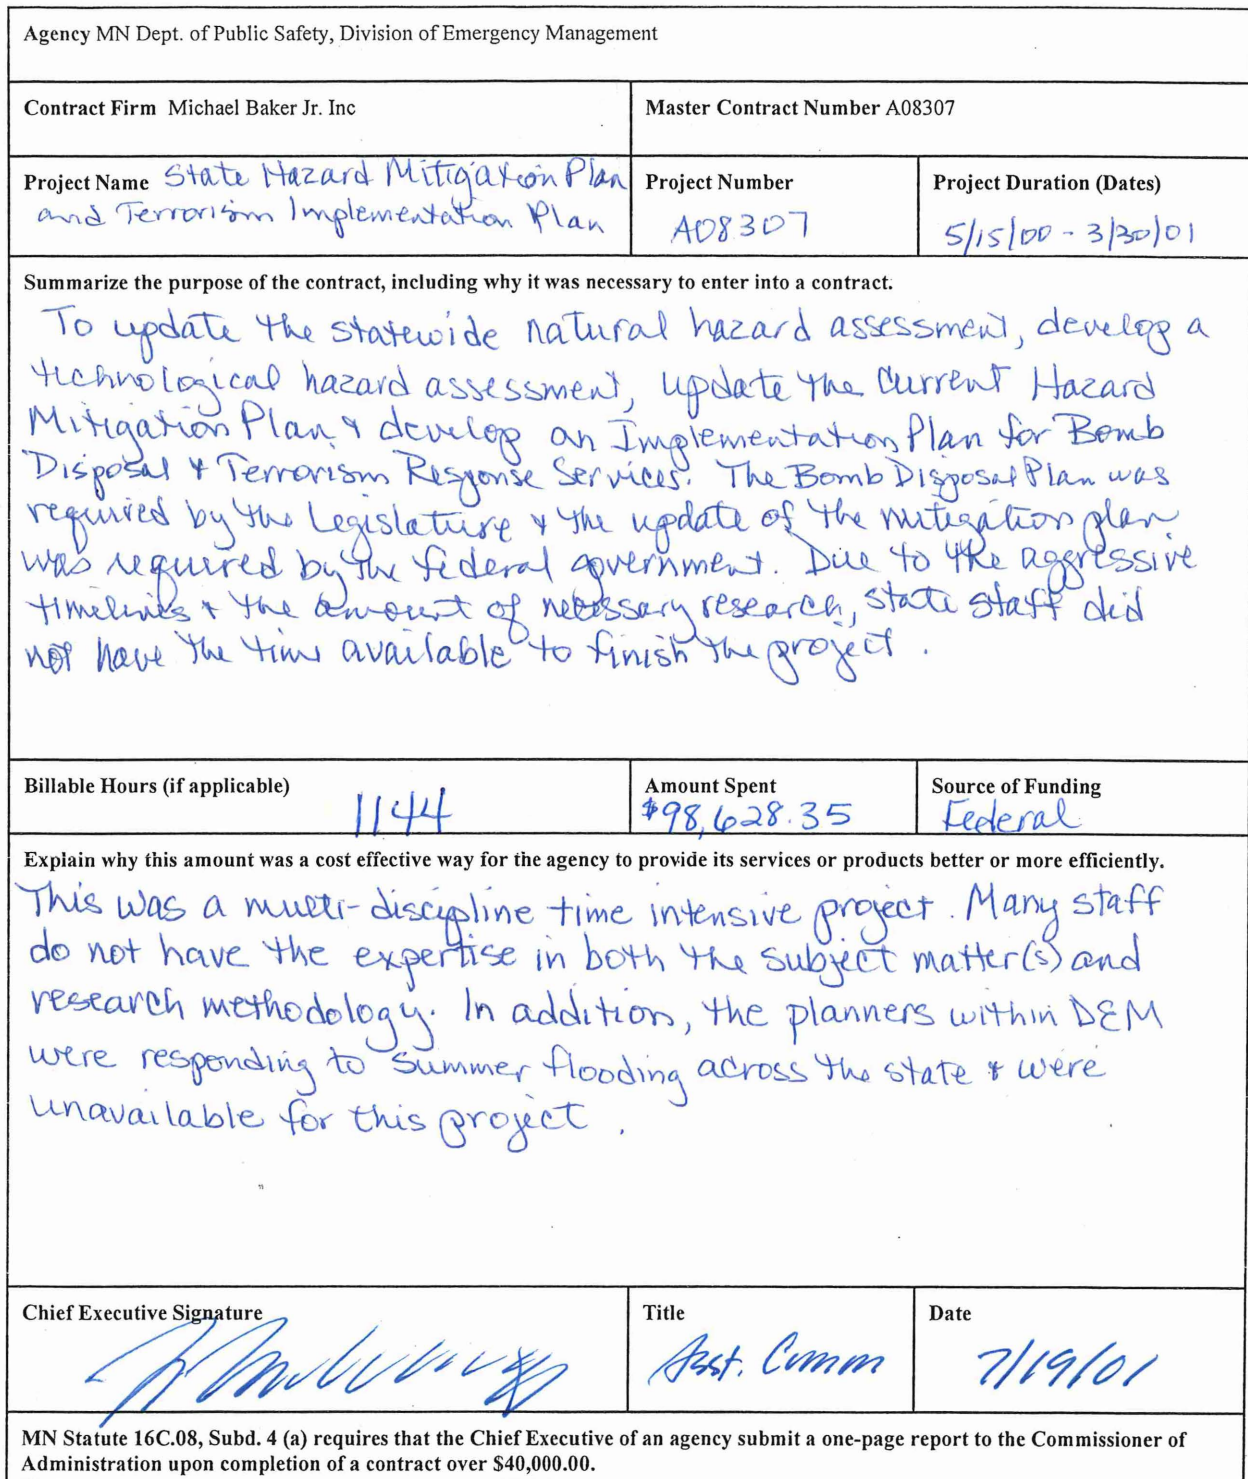 Agency MN Dept. of Public Safety, Division of Emergency Management
Contract Firm Michael Baker Jr. Inc
Master Contract Number A08307
Project Name State Hazard Mitigation Plan
and Terrorism Implementation Plan
Project Number
A08307
Project Duration (Dates)
5/15/00 - 3/30/01
Summarize the purpose of the contract, including why it was necessary to enter into a contract.
To update the statewide natural hazard assessment, develop a
technological hazard assessment, update the current Hazard
Mitigation Plan & develop an Implementation Plan for Bomb
Disposal & Terrorism Response Services. The Bomb Disposal Plan was
required by the Legislature & the update of the mitigation plan
was required by the federal government. Due to the aggressive
timelines & the amount of necessary research, state staff did
not have the time available to finish the project.
Billable Hours (if applicable)
1144
Amount Spent
$98,628.35
Source of Funding
Federal
Explain why this amount was a cost effective way for the agency to provide its services or products better or more efficiently.
This was a multi-discipline time intensive project. Many staff
do not have the expertise in both the subject matter(s) and
research methodology. In addition, the planners within DEM
were responding to summer flooding across the state & were
unavailable for this project.
Chief Executive Signature
Title
Asst. Comm
Date
7/19/01
MN Statute 16C.08, Subd. 4 (a) requires that the Chief Executive of an agency submit a one-page report to the Commissioner of
Administration upon completion of a contract over $40,000.00.